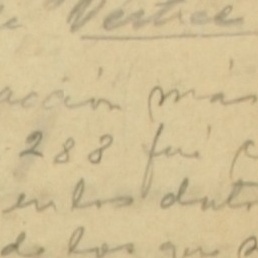 de Vertice
ación más
288 fué
en los dat
de los que